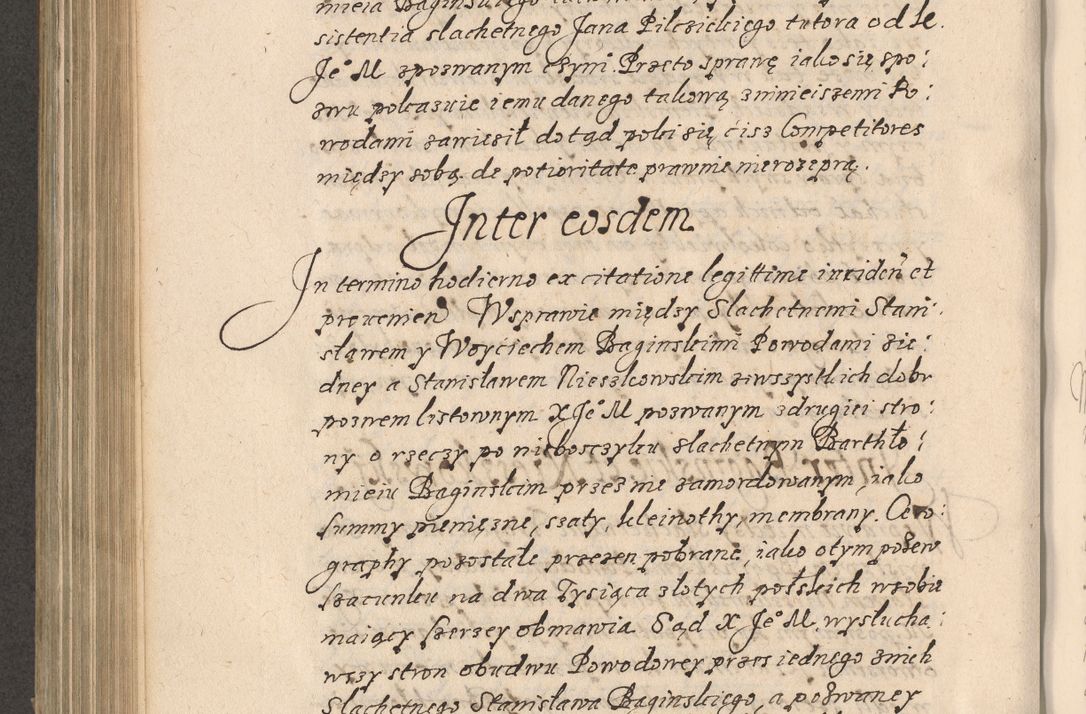 mieia Baginskiego
sistentia slachetnego Jana Pilczickiego tutora od Ie.
Je° M zpozwanym czyni. Przeto sprawę iako się z po:
zwu pokazuie iemu danego takową zninieiszemi Po:
wodami zawiesił dotąd poki się ciż Competitores
między sobą de potioritate prawnie nierozeprą.
Inter eosdem
In termino hodierno ex citatione legittime inciden et
provenien Wsprawie między Slachetnemi Stani:
sławem y Woyciechem Baginskimi Powodami zie:
dney a Stanisławem Nieszkowskim zewszystkich dobr
pozwem listownym X Je° M pozwanym zdrugiei stro:
ny o rzeczy po nieboszczyku slachetnym Barthło:
mieiu Baginskim przez nie zamordowanym, iako
summy pieniężne, szaty, kleinothy, membrany. Cero:
graphy pozostałe przezen pobrane, iako o tym pozew
szacunku na dwa Tysiąca złotych polskich wsobie
maiący szerzey obmawia. Sąd X Je° M. wysłucha:
wszy stron obudwu Powodowey przez iednego znich
Slachetnego Stanisława Baginskiego, a pozwaney